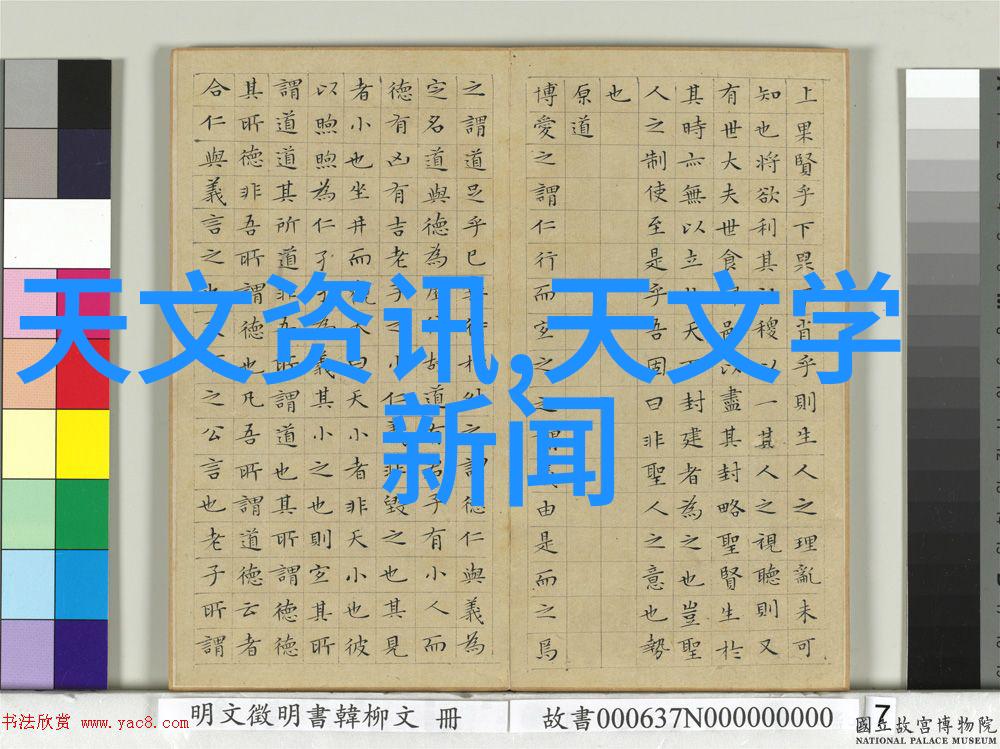 天文资讯,天文学
新闻
上果賢乎下果肖乎則生人之理亂未可
知也將欲利其社稷以一其人之視聽則又
有世大夫世食祿邑以盡其封略聖賢生於
其時亦無以立於天下封建者為之也豈聖
人之制使至是乎吾固曰非聖人之意也勢
也
原道
博愛之謂仁行而宜之之謂由是而之焉
之謂道足乎已無待於外之謂德仁與義為
定名道與德為虛位故道有君子有小人而
德有凶有吉老子之小仁義非毀之也其見
者小也坐井而觀天曰天小者非天小也彼
以煦煦為仁孑孑為義其小之也則宜其所
謂道道其所道非吾所謂道也其所謂德德
其所德非吾所謂德也凡吾所謂道德云者
合仁與義言之也之公言也老子所謂
明文徵明書韓柳文 冊
故書000637N000000000
7
國立故宮博物院
NATIONAL PALACE MUSEUM
书法欣赏 www.yac8.com